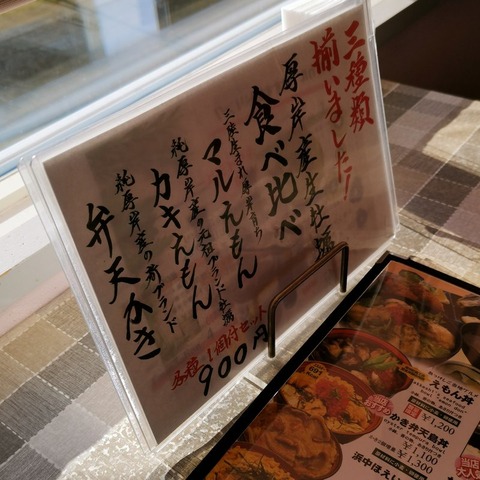 三種類
揃いました!
厚岸産生牡蠣
食べ比べ
三陸生まれ厚岸育ち
マルえもん
純厚岸産の元祖ブランド牡蠣
カキえもん
純厚岸産の新ブランド
弁天かき
各種1個付セット
900円
えもん丼
1,200
かき弁天島丼
1,100
1,300
浜中ほえい
当店
大人